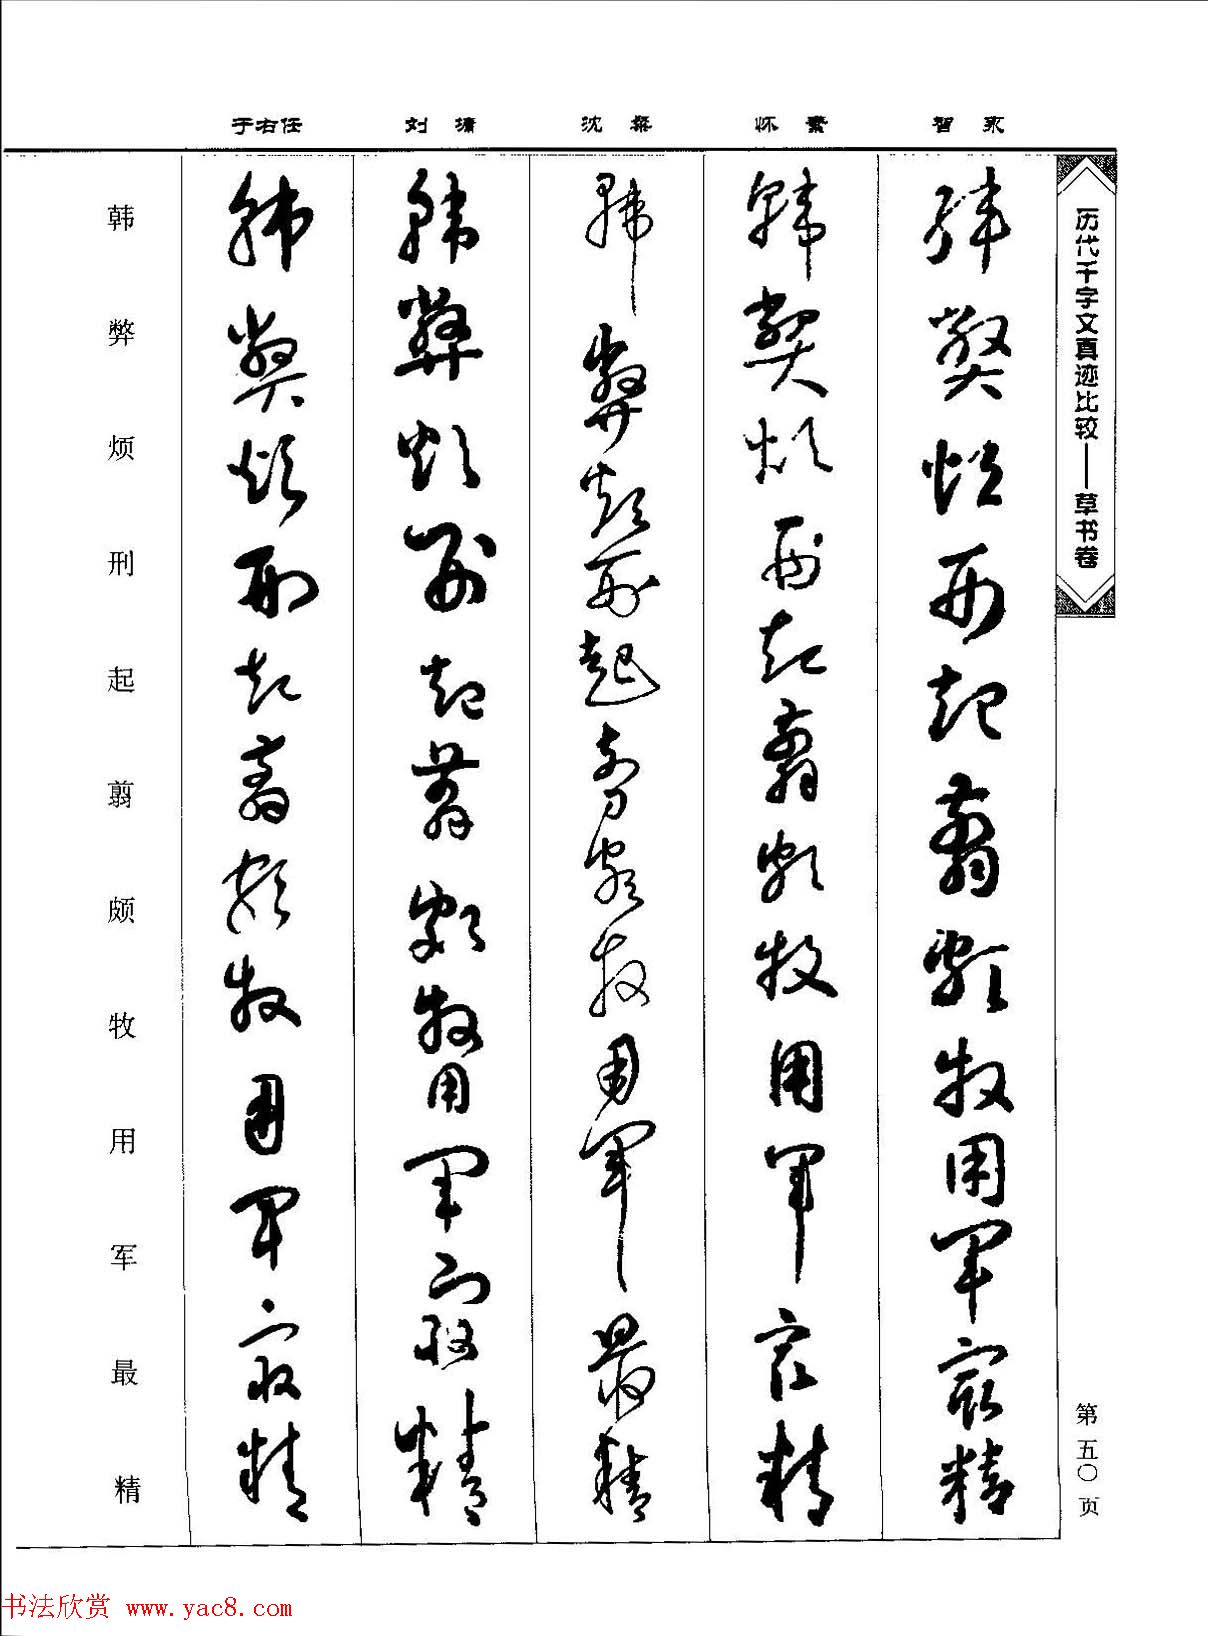 于右任 刘墉 沈粲 怀素 智永
历代千字文真迹比较——草书卷
第五〇页
韩弊烦刑起翦颇牧用军最精
韩弊烦刑起翦颇牧用军最精
韩弊烦刑起翦颇牧用军最精
韩弊烦刑起翦颇牧用军最精
韩弊烦刑起翦颇牧用军最精
韩弊烦刑起翦颇牧用军最精
书法欣赏 www.yac8.com